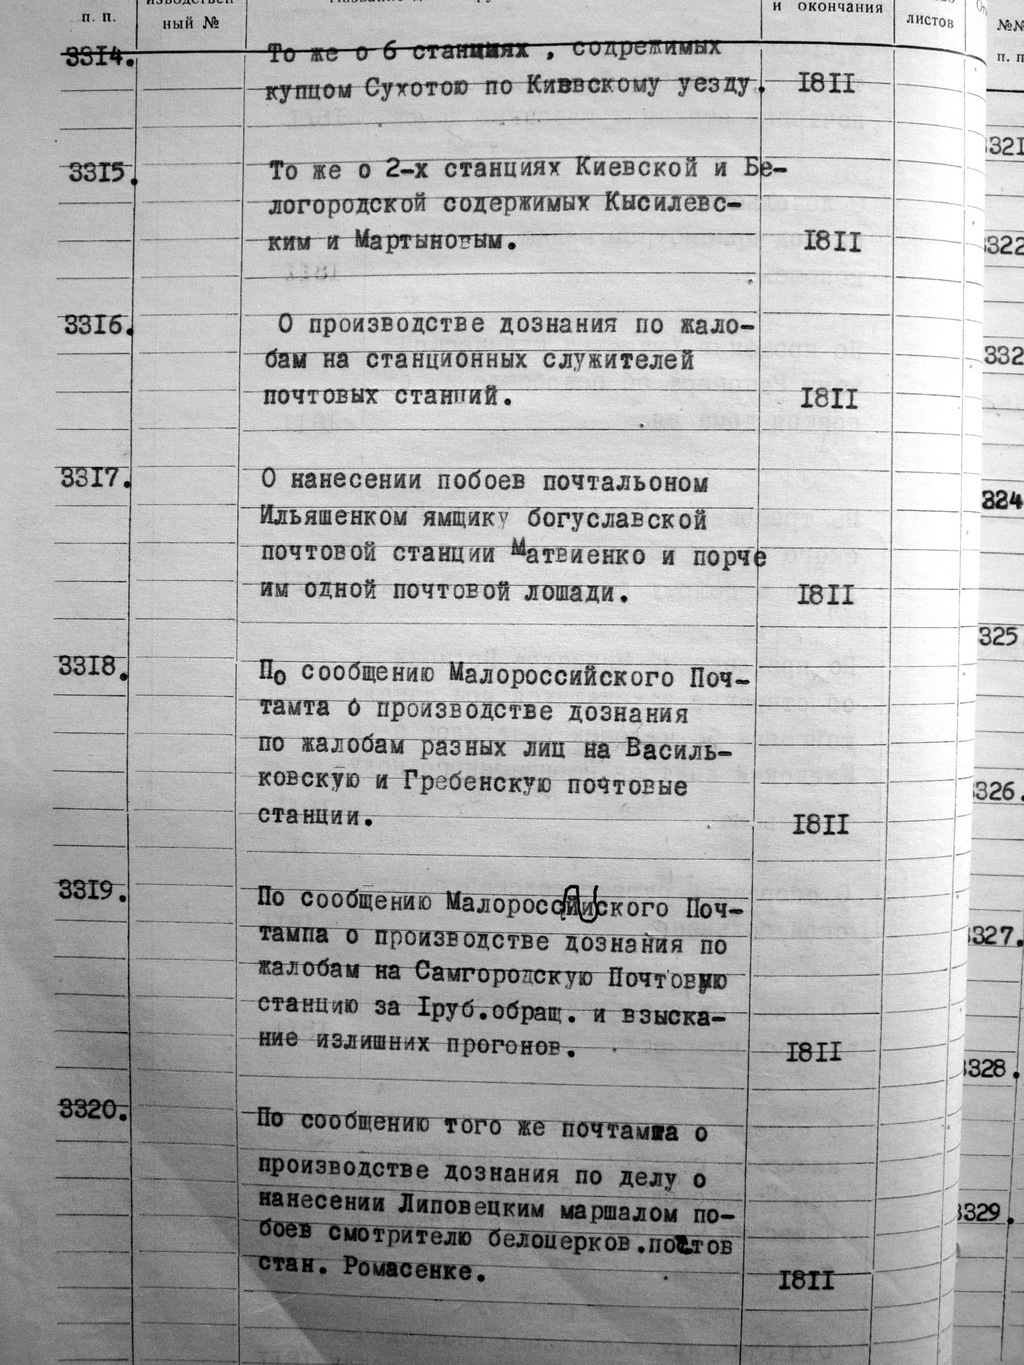 п. п.
ный №
и окончания
листов
№№
п. п
3314. То же о 6 станциях , содрежимых
купцом Сухотою по Кивскому уезду. 1811
3315. То же о 2-х станциях Киевской и Бе-
логородской содержимых Кысилевс-
ким и Мартыновым. 1811
3316. О производстве дознания по жало-
бам на станционных служителей
почтовых станций. 1811
3317. О нанесении побоев почтальоном
Ильяшенком ямщику богуславской
почтовой станции Матвиенко и порче
им одной почтовой лошади. 1811
3318. По сообщению Малороссийского Поч-
тамта о производстве дознания
по жалобам разных лиц на Василь-
ковскую и Гребенскую почтовые
станции. 1811
3319. По сообщению Малороссийского Поч-
тампа о производстве дознания по
жалобам на Самгородскую Почтовую
станцию за 1руб.обращ. и взыска-
ние излишних прогонов. 1811
3320. По сообщению того же почтамта о
производстве дознания по делу о
нанесении Липовецким маршалом по-
боев смотрителю белоцерков.почтов
стан. Ромасенке. 1811
321
322
332
324
325
326.
327.
328.
3329.